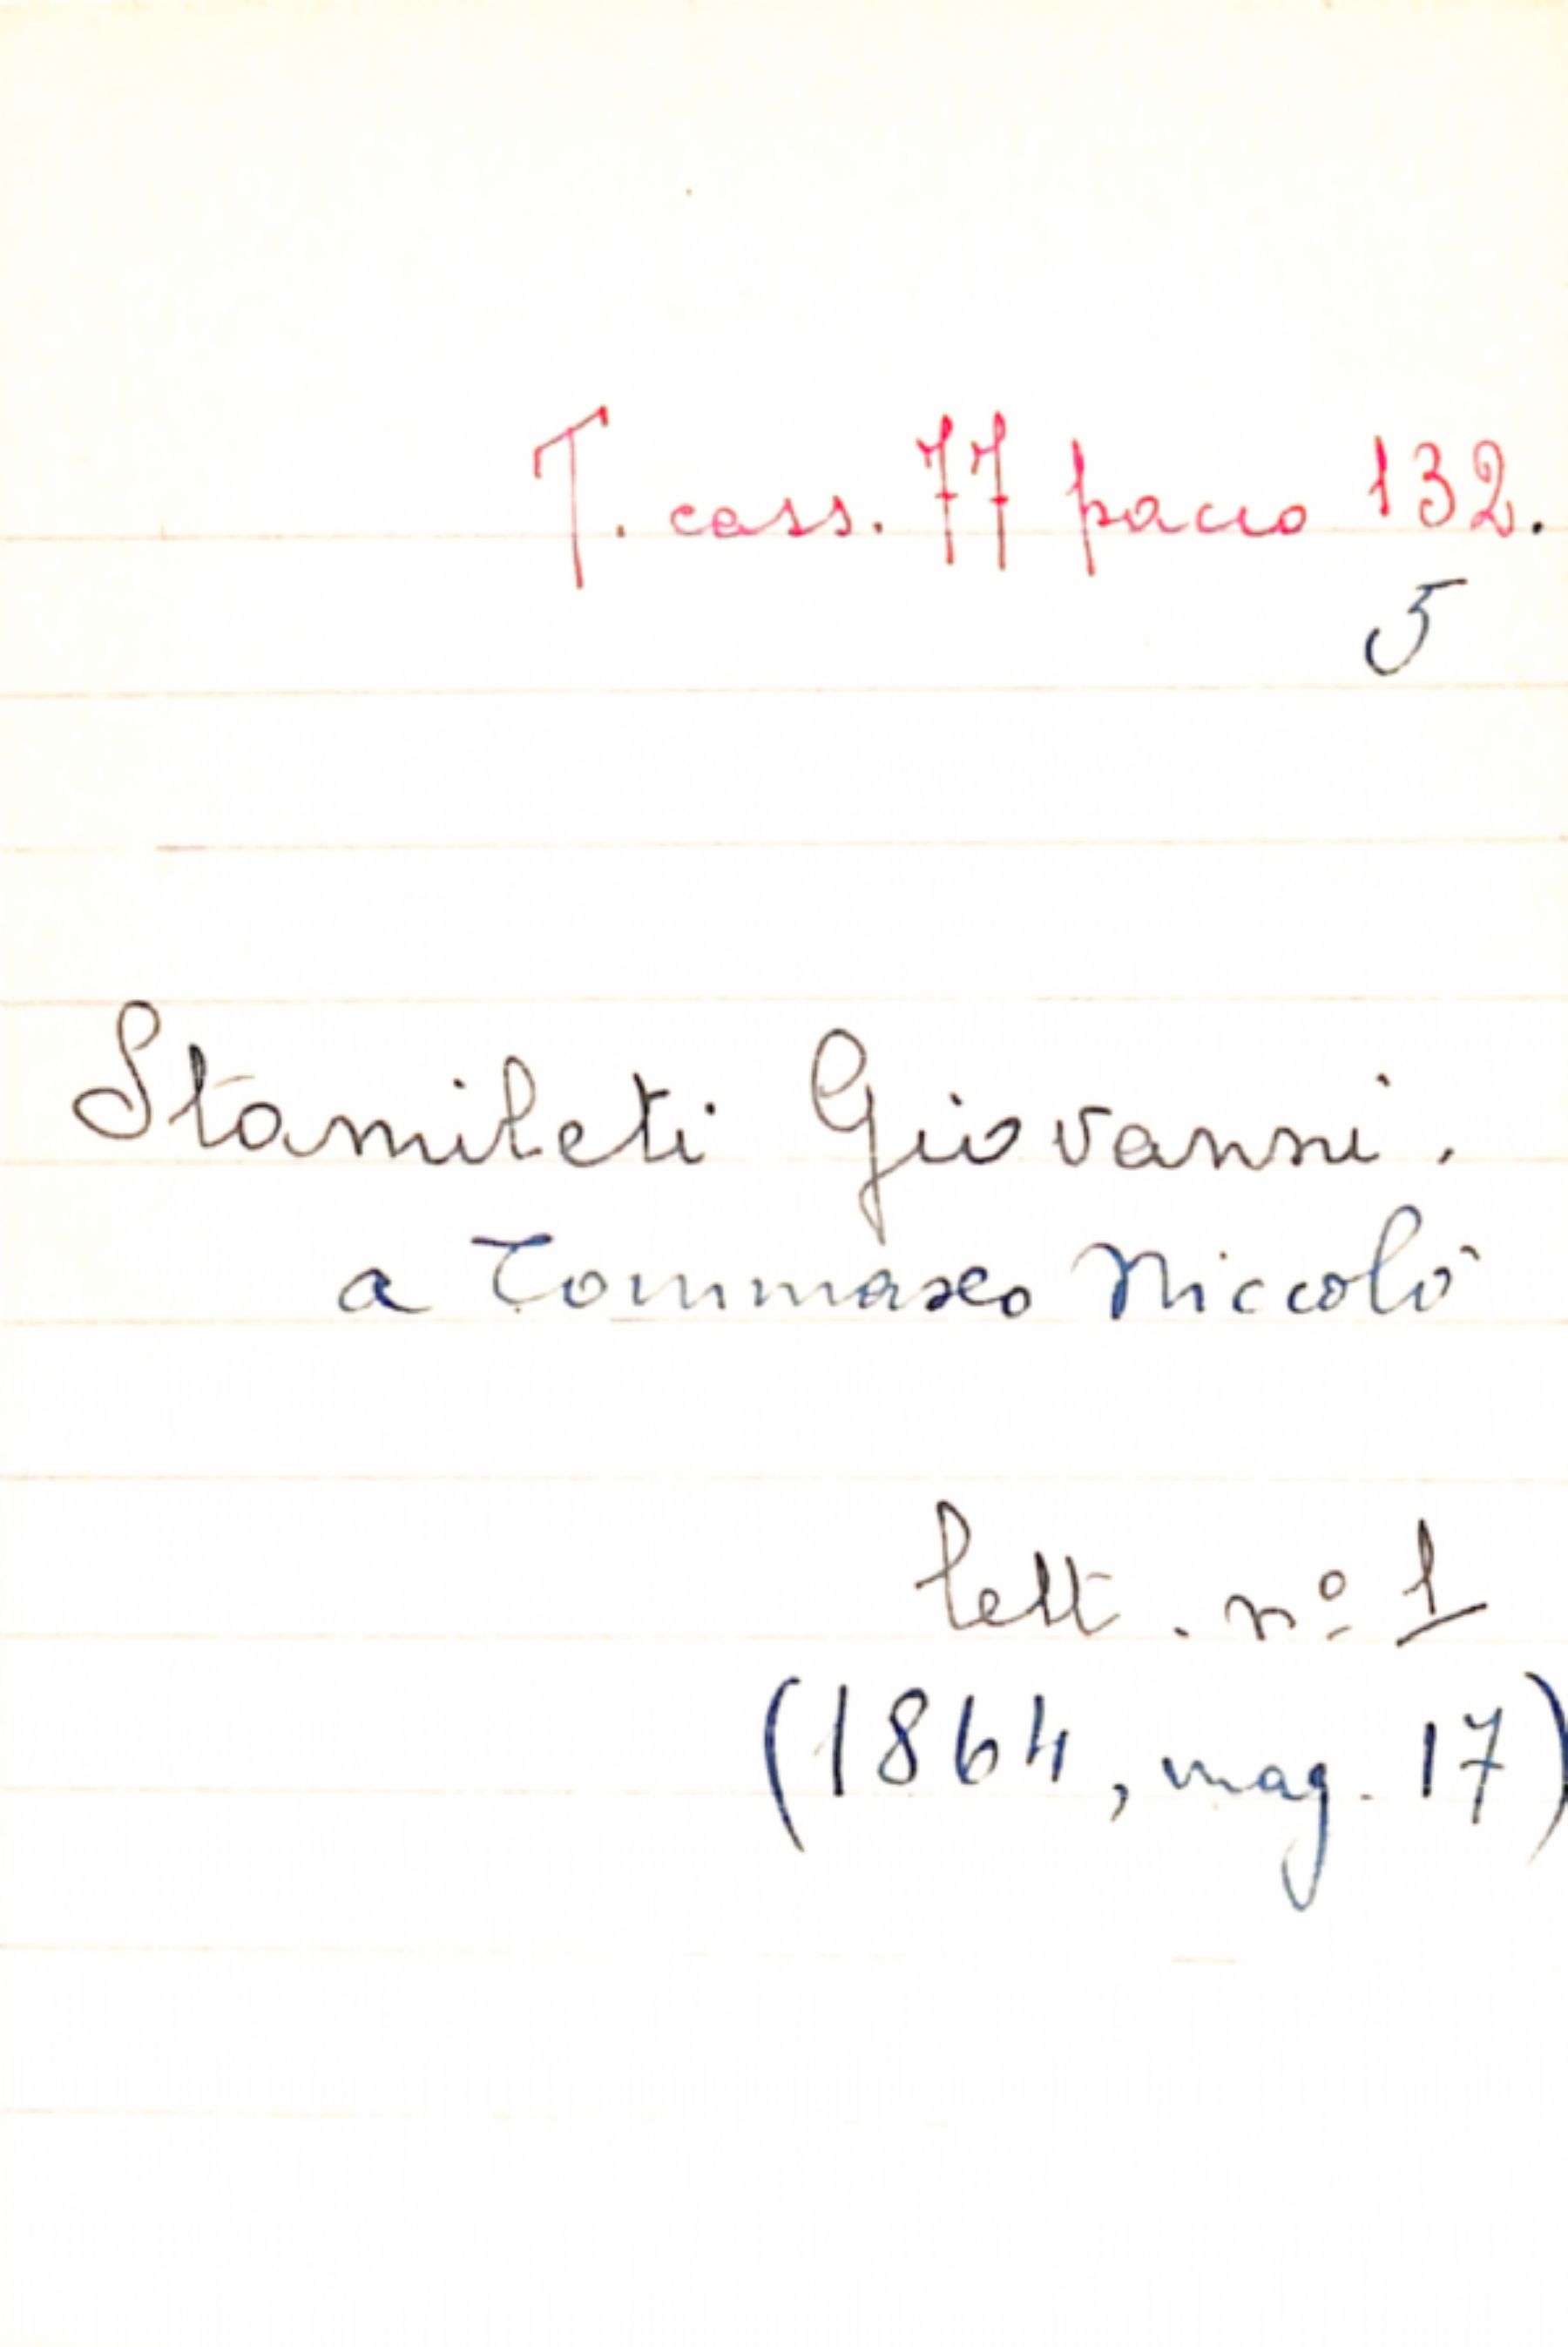 T. cass. 77 pacco 132.
5
Stamileti Giovanni.
a Tommaseo Niccolò
lett. nº 1
(1864, mag. 17)